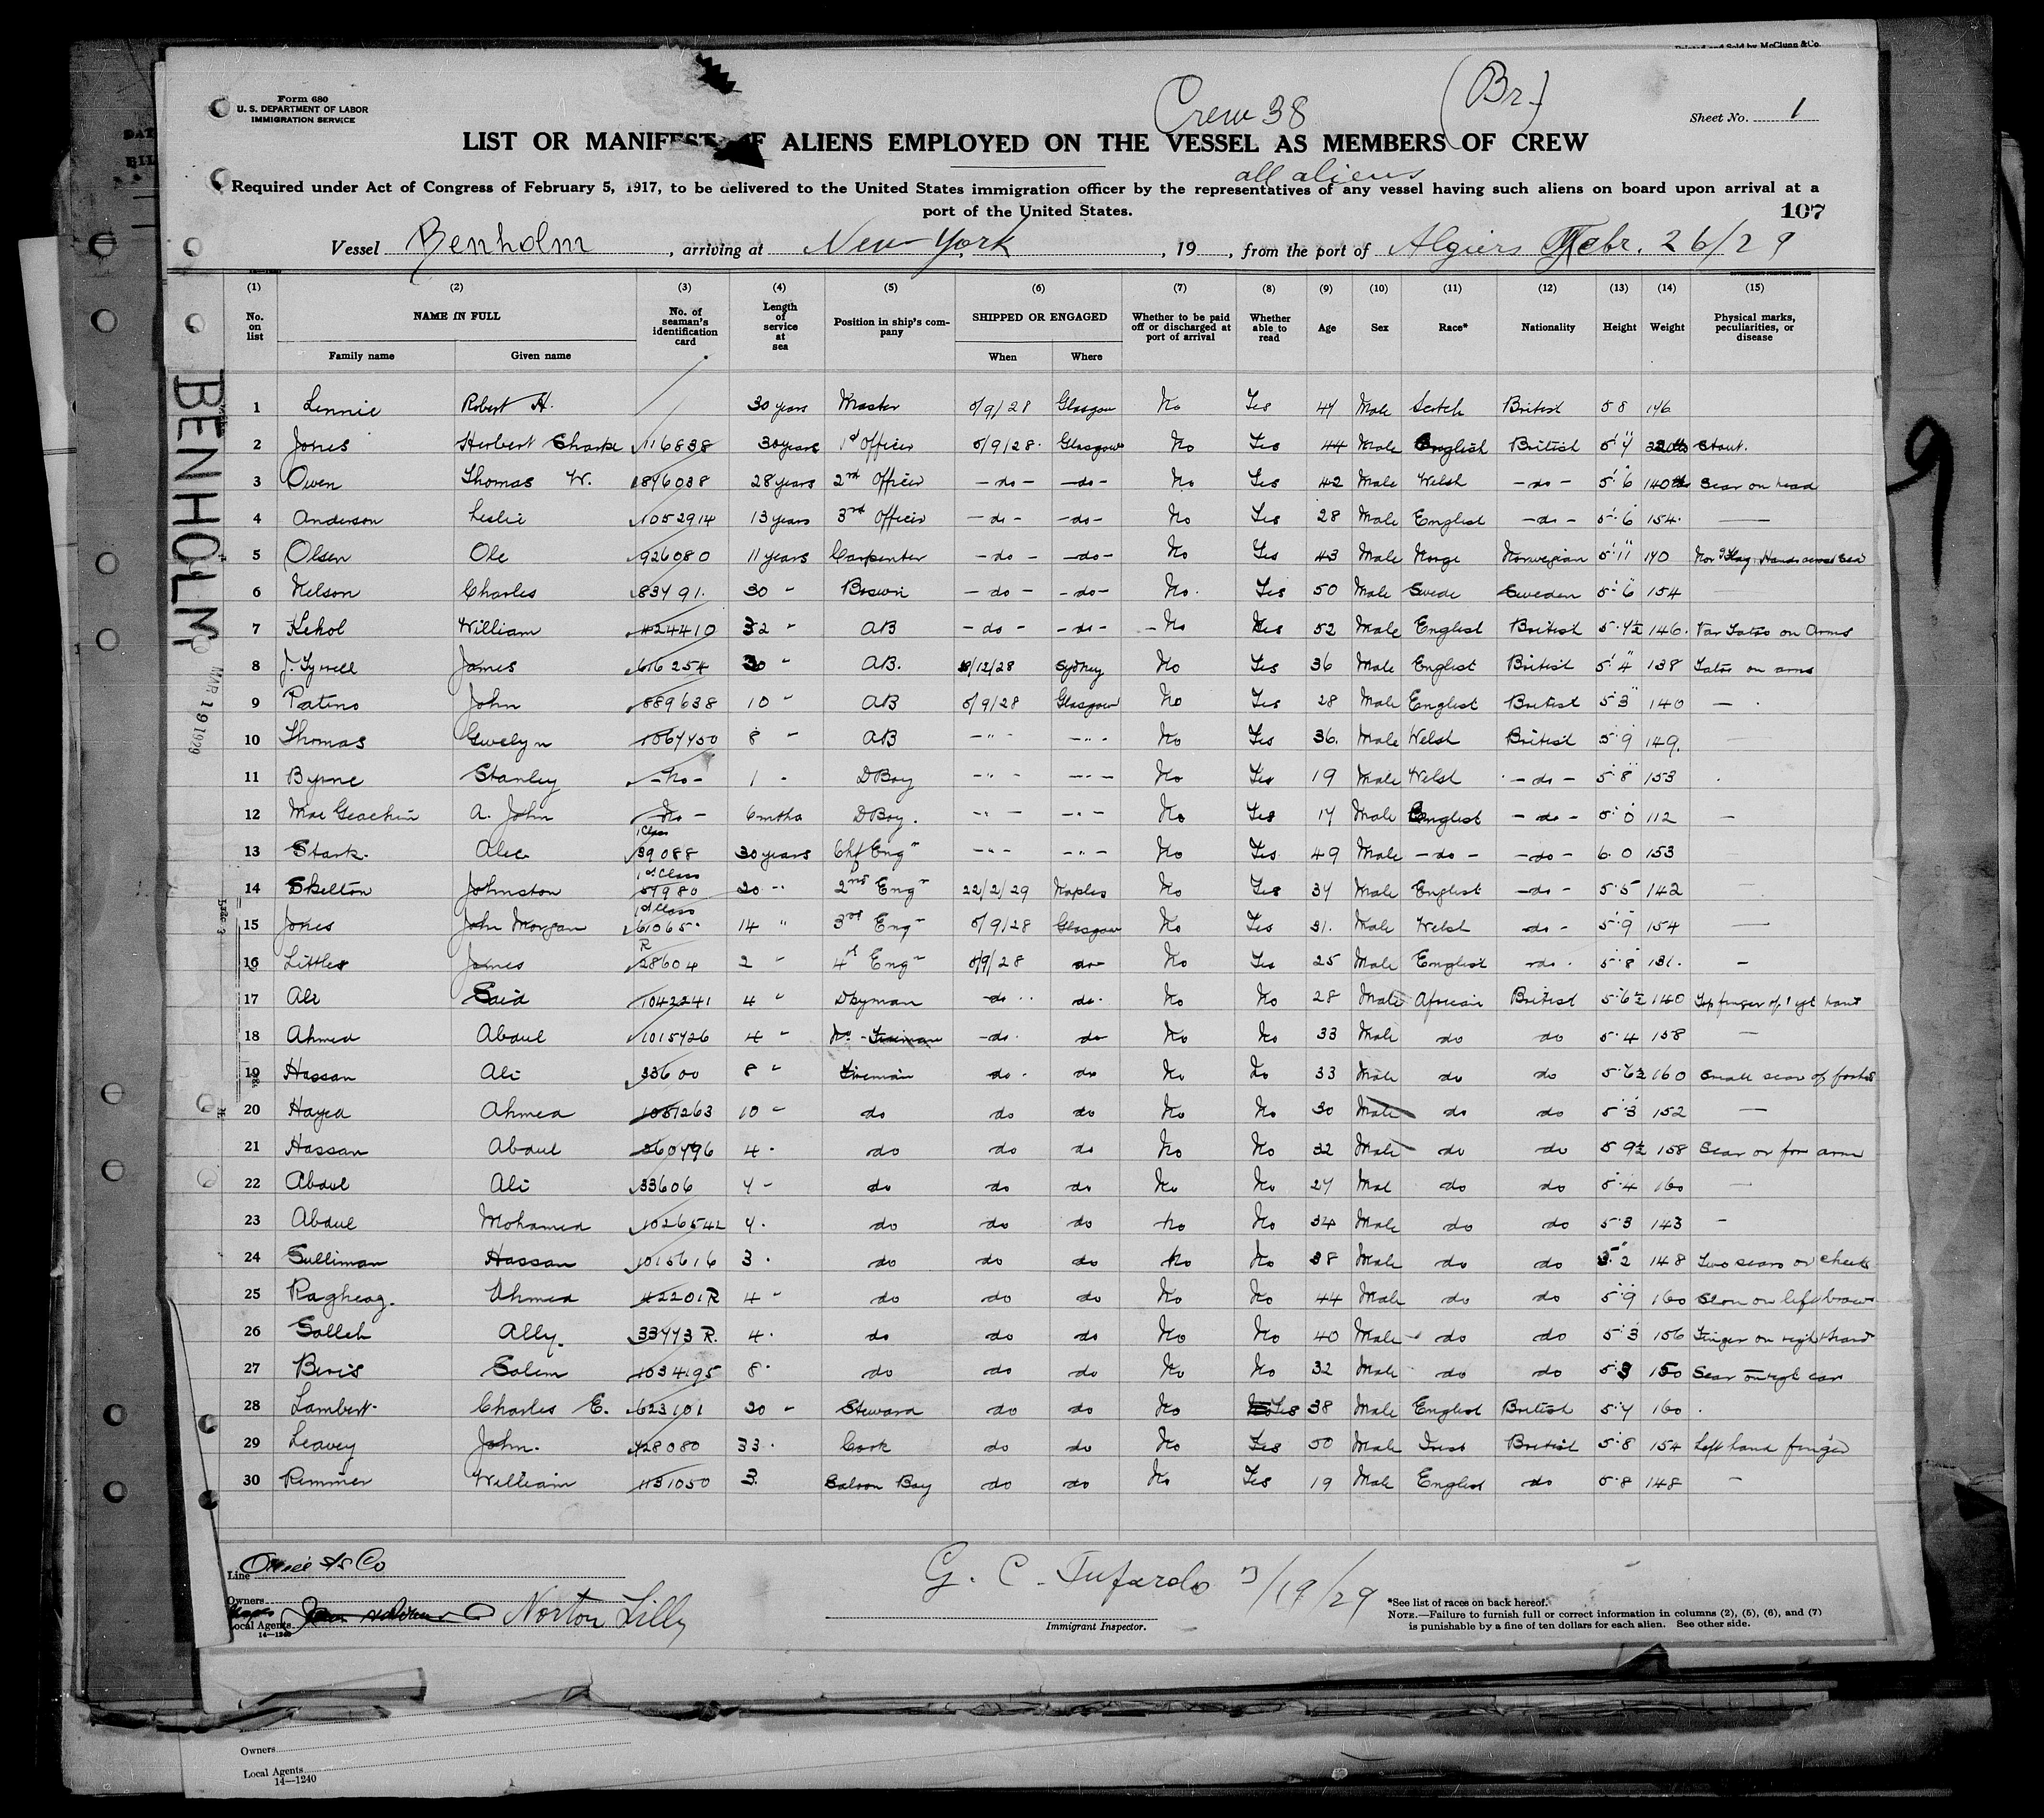 Printed and Sold by McClunn & Co.
Form 680
U. S. DEPARTMENT OF LABOR
IMMIGRATION SERVICE
Crew 38 (Br.)
Sheet No. 1
LIST OR MANIFEST OF ALIENS EMPLOYED ON THE VESSEL AS MEMBERS OF CREW
all aliens
Required under Act of Congress of February 5, 1917, to be delivered to the United States immigration officer by the representatives of any vessel having such aliens on board upon arrival at a
port of the United States.
107
Vessel Benholm, arriving at New York, 19 , from the port of Algiers Febr. 26/29
(1) (2) (3) (4) (5) (6) (7) (8) (9) (10) (11) (12) (13) (14) (15)
No. on list NAME IN FULL No. of seaman's identification card Length of service at sea Position in ship's company SHIPPED OR ENGAGED Whether to be paid off or discharged at port of arrival Whether able to read Age Sex Race* Nationality Height Weight Physical marks, peculiarities, or disease
Family name Given name When Where
1 Lennie Robert H. 30 years Master 5/9/28 Glasgow No Yes 47 Male Scotch British 5 8 176
2 Jones Herbert Sharke 116838 30 years 1st Officer 5/9/28. Glasgow No Yes 44 Male English British 5' 7" Stout.
3 Owen Thomas W. 896038 28 years 2nd Officer -do- -do- No Yes 42 Male Welsh -do- 5' 6 140 Scar on head
4 Anderson Leslie 1052914 13 years 3rd Officer -do- -do- No Yes 28 Male English -do- 5' 6 154. —
5 Olsen Ole 926080 11 years Carpenter -do- -do- No Yes 43 Male Norge Norwegian 5' 11" 170 Nor Flag. Hands across Sea
6 Nelson Charles 83791. 30 " Boswn -do- -do- No. Yes 50 Male Swede Sweden 5' 6" 154
7 Kehol William 424410 32 " AB -do- -do- No Yes 52 Male English British 5.7½ 146. Var Tatos on Arms
8 J. Tyrrell James 616254 30 " AB. 8/12/28 Sydney No Yes 36 Male English British 5' 4" 138 Tatos on arms
9 Patins John 889638 10 " AB 5/9/28 Glasgow No Yes 28 Male English British 5 3" 140 —
10 Thomas Gwelyn 1067750 8 " AB -"- -"- No Yes 36. Male Welsh British 5 9 149.
11 Byrne Stanley -No- 1 " D Boy -"- -"- No Yes 19 Male Welsh -do- 5' 8" 153
12 Mac Geachin A. John No - 6 mths D Boy. -"- -"- No Yes 17 Male English -do- 5' 0 112 —
13 Stark. Alec 1 Class 39088 30 years Chf Engr -"- -"- No Yes 49 Male -do- -do- 6. 0 153
14 Skelton Johnston 1st Class 57980 20 " 2nd Engr 22/2/29 Naples No Yes 37 Male English -do- 5.5 142
15 Jones John Morgan 1st Class 61065 14 " 3rd Engr 5/9/28 Glasgow No Yes 31. Male Welsh do - 5' 9 154 —
16 Littler James R 28604 2 " 4th Engr 5/9/28 do No Yes 25 Male English do. 5' 8 131. —
17 Ali Said 1042241 4 " Dkyman do do. No No 28 Male African British 5' 6½ 140
18 Ahmed Abdul 1015726 4 " No. Fireman do. do No No 33 Male do do 5.4 158 —
19 Hassan Ali 33600 8 " Fireman do. do No No 33 Male do do 5' 6½ 160
20 Hayed Ahmed 1081263 10 " do do do No No 30 Male do do 5' 3 152 —
21 Hassan Abdul 360796 4 . do do do No No 32 Male do do 5 9½ 158 Scar on for arm
22 Abdul Ali 33606 7 - do do do No No 27 Mal do do 5.4 160 —
23 Abdul Mohamed 1026542 7. do do do No No 34 Male do do 5.3 143 -
24 Sulliman Hassan 1015616 3 . do do do No No 38 Male do do 5.2 148 Two scars on cheeks
25 Ragheag. Ahmed 42201 R 4 " do do do No No 44 Male do do 5' 9 160 Scar on left brow
26 Salleh Ally. 33773 R. 4. do do do No No 40 Male do do 5' 3 156 Finger on right hand
27 Beris Salem 1034195 8. do do do No No 32 Male do do 5.3 150 Scar on rigt ear
28 Lambert Charles E. 623101 20 " Steward do do No Yes 38 Male English British 5.7 160 .
29 Leavey John. 428080 33. Cook do do No Yes 50 Male Irish British 5.8 154 Left hand finger
30 Rimmer William 1131050 3. Saloon Boy do do No Yes 19 Male English do 5.8 148 —
BENHOLM
MAR 19 1929
9
Line
Owners
Local Agents Norton Lilly
14—1240
G. C. Tufardo 3/19/29
Immigrant Inspector.
*See list of races on back hereof.
NOTE.—Failure to furnish full or correct information in columns (2), (5), (6), and (7)
is punishable by a fine of ten dollars for each alien. See other side.
Owners
Local Agents
14—1240